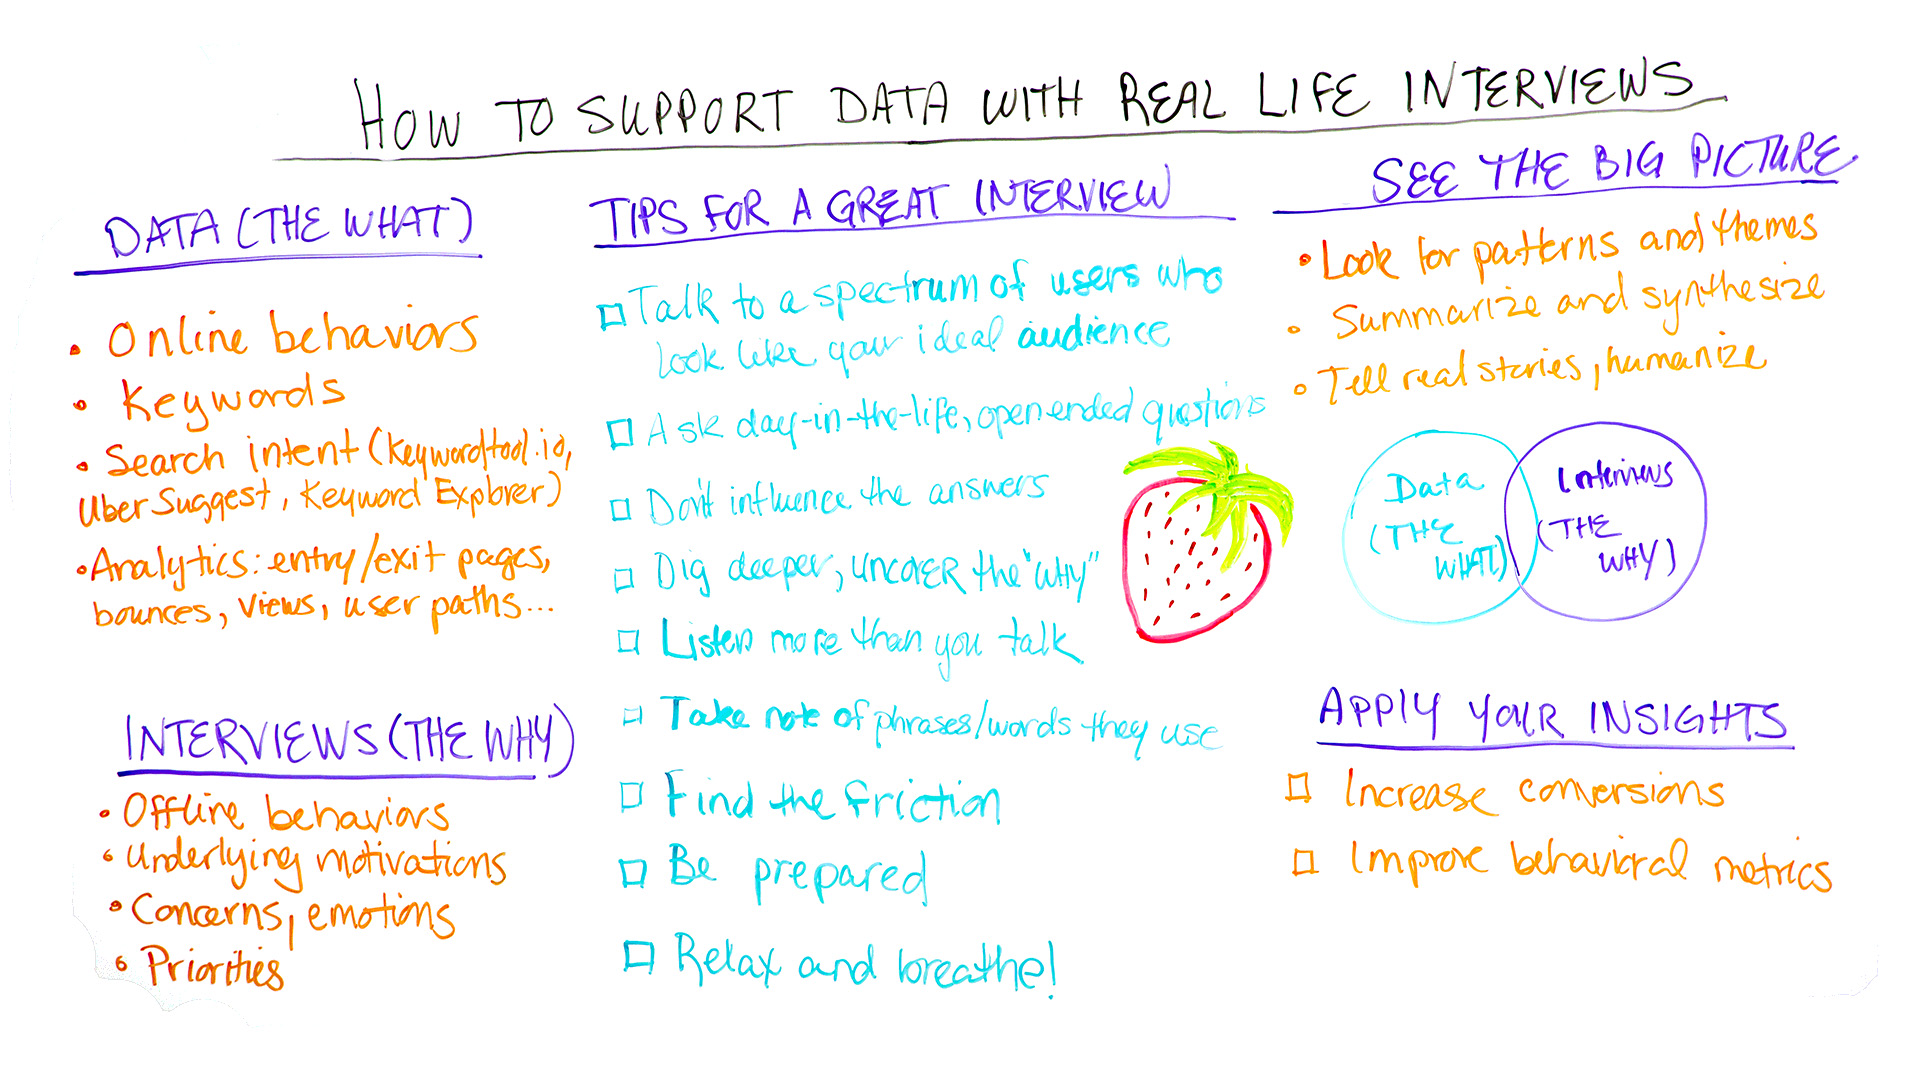 HOW TO SUPPORT DATA WITH REAL LIFE INTERVIEWS
DATA (THE WHAT)
• Online behaviors
• Keywords
• Search intent (Keywordtool.io,
UberSuggest, Keyword Explorer)
• Analytics: entry/exit pages,
bounces, views, user paths...
INTERVIEWS (THE WHY)
• Offline behaviors
• Underlying motivations
• Concerns, emotions
• Priorities
TIPS FOR A GREAT INTERVIEW
☐ Talk to a spectrum of users who
look like your ideal audience
☐ Ask day-in-the-life, open ended questions
☐ Don't influence the answers
☐ Dig deeper, UNCOVER the "WHY"
☐ Listen more than you talk
☐ Take note of phrases/words they use
☐ Find the friction
☐ Be prepared
☐ Relax and breathe!
SEE THE BIG PICTURE
• Look for patterns and themes
• Summarize and synthesize
• Tell real stories, humanize
Data
(THE
WHAT)
Interviews
(THE
WHY)
APPLY YOUR INSIGHTS
☐ Increase conversions
☐ Improve behavioral metrics